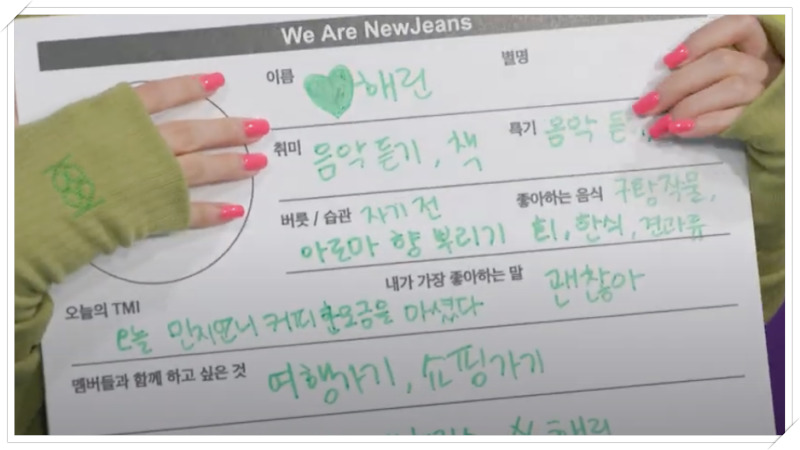 We Are NewJeans
이름 해린 별명
취미 음악 듣기, 책 특기 음악 듣
버릇 / 습관 자기 전 좋아하는 음식
아로마 향 뿌리기 회, 한식, 견과류
내가 가장 좋아하는 말 괜찮아
오늘의 TMI
오늘 민지언니 커피 한모금을 마셨다
멤버들과 함께 하고 싶은 것 여행가기, 쇼핑가기
해린